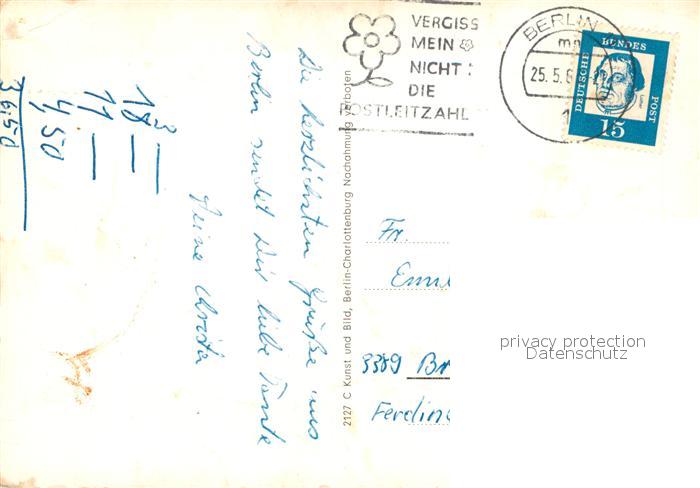 VERGISS
MEIN
NICHT:
DIE
POSTLEITZAHL
BERLIN
25.5.6
1
DEUTSCHE
BUNDES
POST
15
Die herzlichsten Grüße aus
Berlin sendet Dir liebe Tante
Deine Christa
3
18 —
11 —
4,50
36,50
2127 C Kunst und Bild, Berlin-Charlottenburg Nachahmung verboten
Fr.
3389
Ferdin
privacy protection
Datenschutz